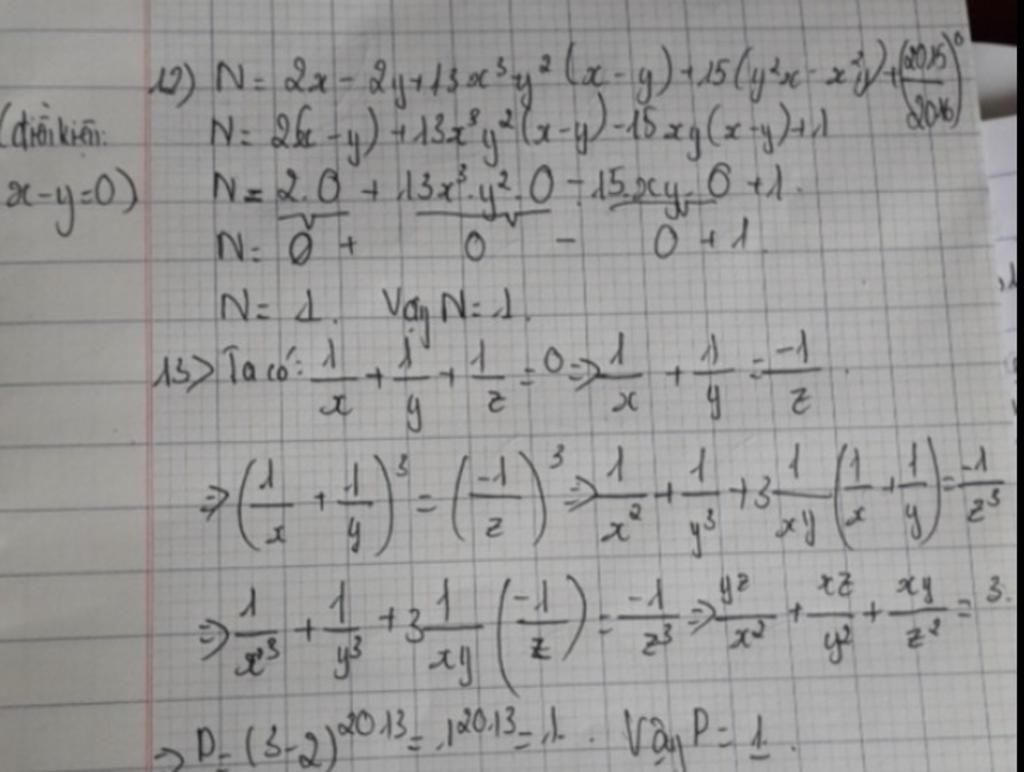 12) N = 2x - 2y + 13x³y² (x - y) + 15(y²x - x²y) + (2015/2016)⁰
(điều kiện: N = 2(x - y) + 13x³y² (x - y) - 15xy(x - y) + 1
x - y = 0) N = 2.0 + 13x³.y².0 - 15xy.0 + 1.
N = 0 + 0 - 0 + 1
N = 1. Vậy N = 1.
13> Ta có: 1/x + 1/y + 1/z = 0 => 1/x + 1/y = -1/z
=> (1/x + 1/y)³ = (-1/z)³ => 1/x² + 1/y³ + 3 1/xy (1/x + 1/y) = -1/z³
=> 1/x³ + 1/y³ + 3 1/xy (-1/z) = -1/z³ => yz/x² + xz/y² + xy/z² = 3.
=> P = (3-2)^2013 = 1^2013 = 1. Vậy P = 1.